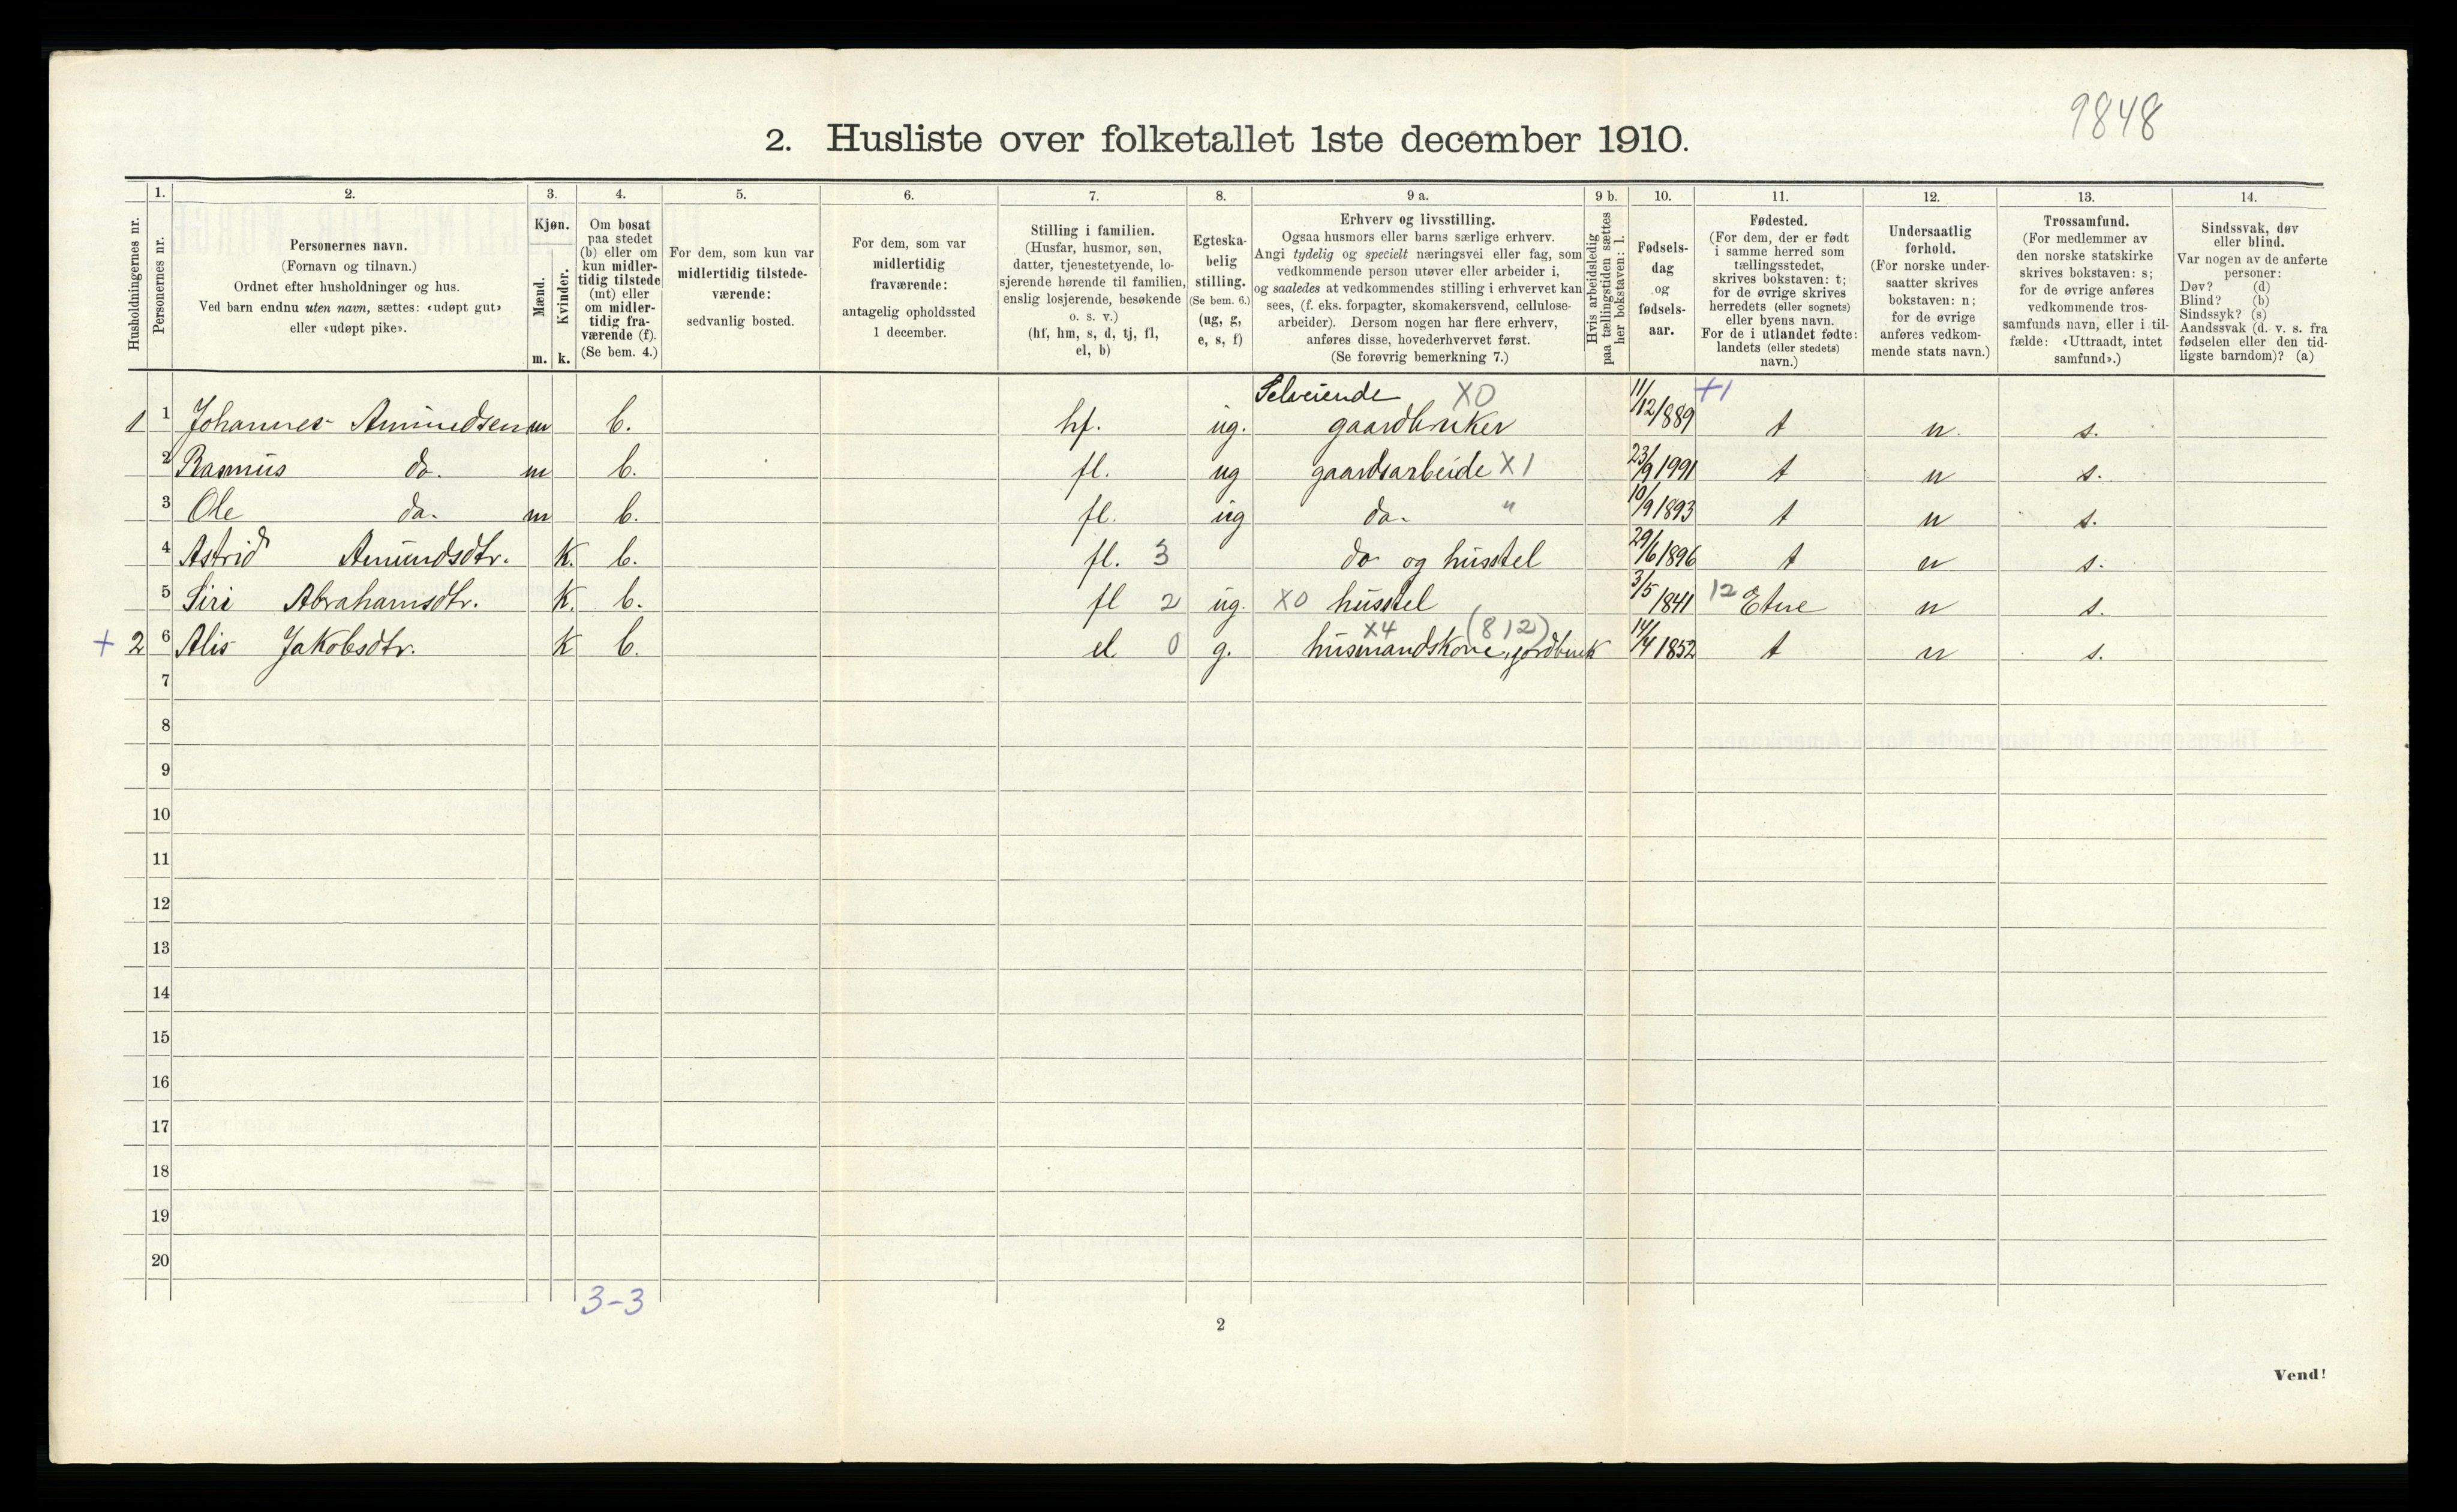 9848
2. Husliste over folketallet 1ste december 1910.
Husholdningernes nr.
1.
Personernes nr.
2.
Personernes navn.
(Fornavn og tilnavn.)
Ordnet efter husholdninger og hus.
Ved barn endnu uten navn, sættes: «udøpt gut»
eller «udøpt pike».
3.
Kjøn.
Mænd.
Kvinder.
m. k.
4.
Om bosat
paa stedet
(b) eller om
kun midler-
tidig tilstede
(mt) eller
om midler-
tidig fra-
værende (f).
(Se bem. 4.)
5.
For dem, som kun var
midlertidig tilstede-
værende:
sedvanlig bosted.
6.
For dem, som var
midlertidig
fraværende:
antagelig opholdssted
1 december.
7.
Stilling i familien.
(Husfar, husmor, søn,
datter, tjenestetyende, lo-
sjerende hørende til familien,
enslig losjerende, besøkende
o. s. v.)
(hf, hm, s, d, tj, fl,
el, b)
8.
Egteska-
belig
stilling.
(Se bem. 6.)
(ug, g,
e, s, f)
9 a.
Erhverv og livsstilling.
Ogsaa husmors eller barns særlige erhverv.
Angi tydelig og specielt næringsvei eller fag, som
vedkommende person utøver eller arbeider i,
og saaledes at vedkommendes stilling i erhvervet kan
sees, (f. eks. forpagter, skomakersvend, cellulose-
arbeider). Dersom nogen har flere erhverv,
anføres disse, hovederhvervet først.
(Se forøvrig bemerkning 7.)
9 b.
Hvis arbeidsledig
paa tællingstiden sættes
her bokstaven: l.
10.
Fødsels-
dag
og
fødsels-
aar.
11.
Fødested.
(For dem, der er født
i samme herred som
tællingsstedet,
skrives bokstaven: t;
for de øvrige skrives
herredets (eller sognets)
eller byens navn.
For de i utlandet fødte:
landets (eller stedets)
navn.)
12.
Undersaatlig
forhold.
(For norske under-
saatter skrives
bokstaven: n;
for de øvrige
anføres vedkom-
mende stats navn.)
13.
Trossamfund.
(For medlemmer av
den norske statskirke
skrives bokstaven: s;
for de øvrige anføres
vedkommende tros-
samfunds navn, eller i til-
fælde: «Uttraadt, intet
samfund».)
14.
Sindssvak, døv
eller blind.
Var nogen av de anførte
personer:
Døv? (d)
Blind? (b)
Sindssyk? (s)
Aandssvak (d. v. s. fra
fødselen eller den tid-
ligste barndom)? (a)
Selveiende X0 +1
1 1 Johannes Amundsen m b. hf. ug. gaardbruker 11/12 1889 t n. s.
2 Rasmus do. m b. fl. ug gaardsarbeide X1 23/9 1991 t n s.
3 Ole do. m b. fl. ug do. " 10/9 1893 t n s.
4 Astrid Amundsdtr. K. b. fl. 3 do og husstel 29/6 1896 t n s.
5 Siri Abrahamsdtr. K. b. fl 2 ug. X0 husstel 3/5 1841 12 Etne n s.
X4 (812)
+ 2 6 Alis Jakobsdtr. K b. el 0 g. husmandskone, jordbruk 14/4 1852 t n s.
7
8
9
10
11
12
13
14
15
16
17
18
19
20
3-3
2
Vend!